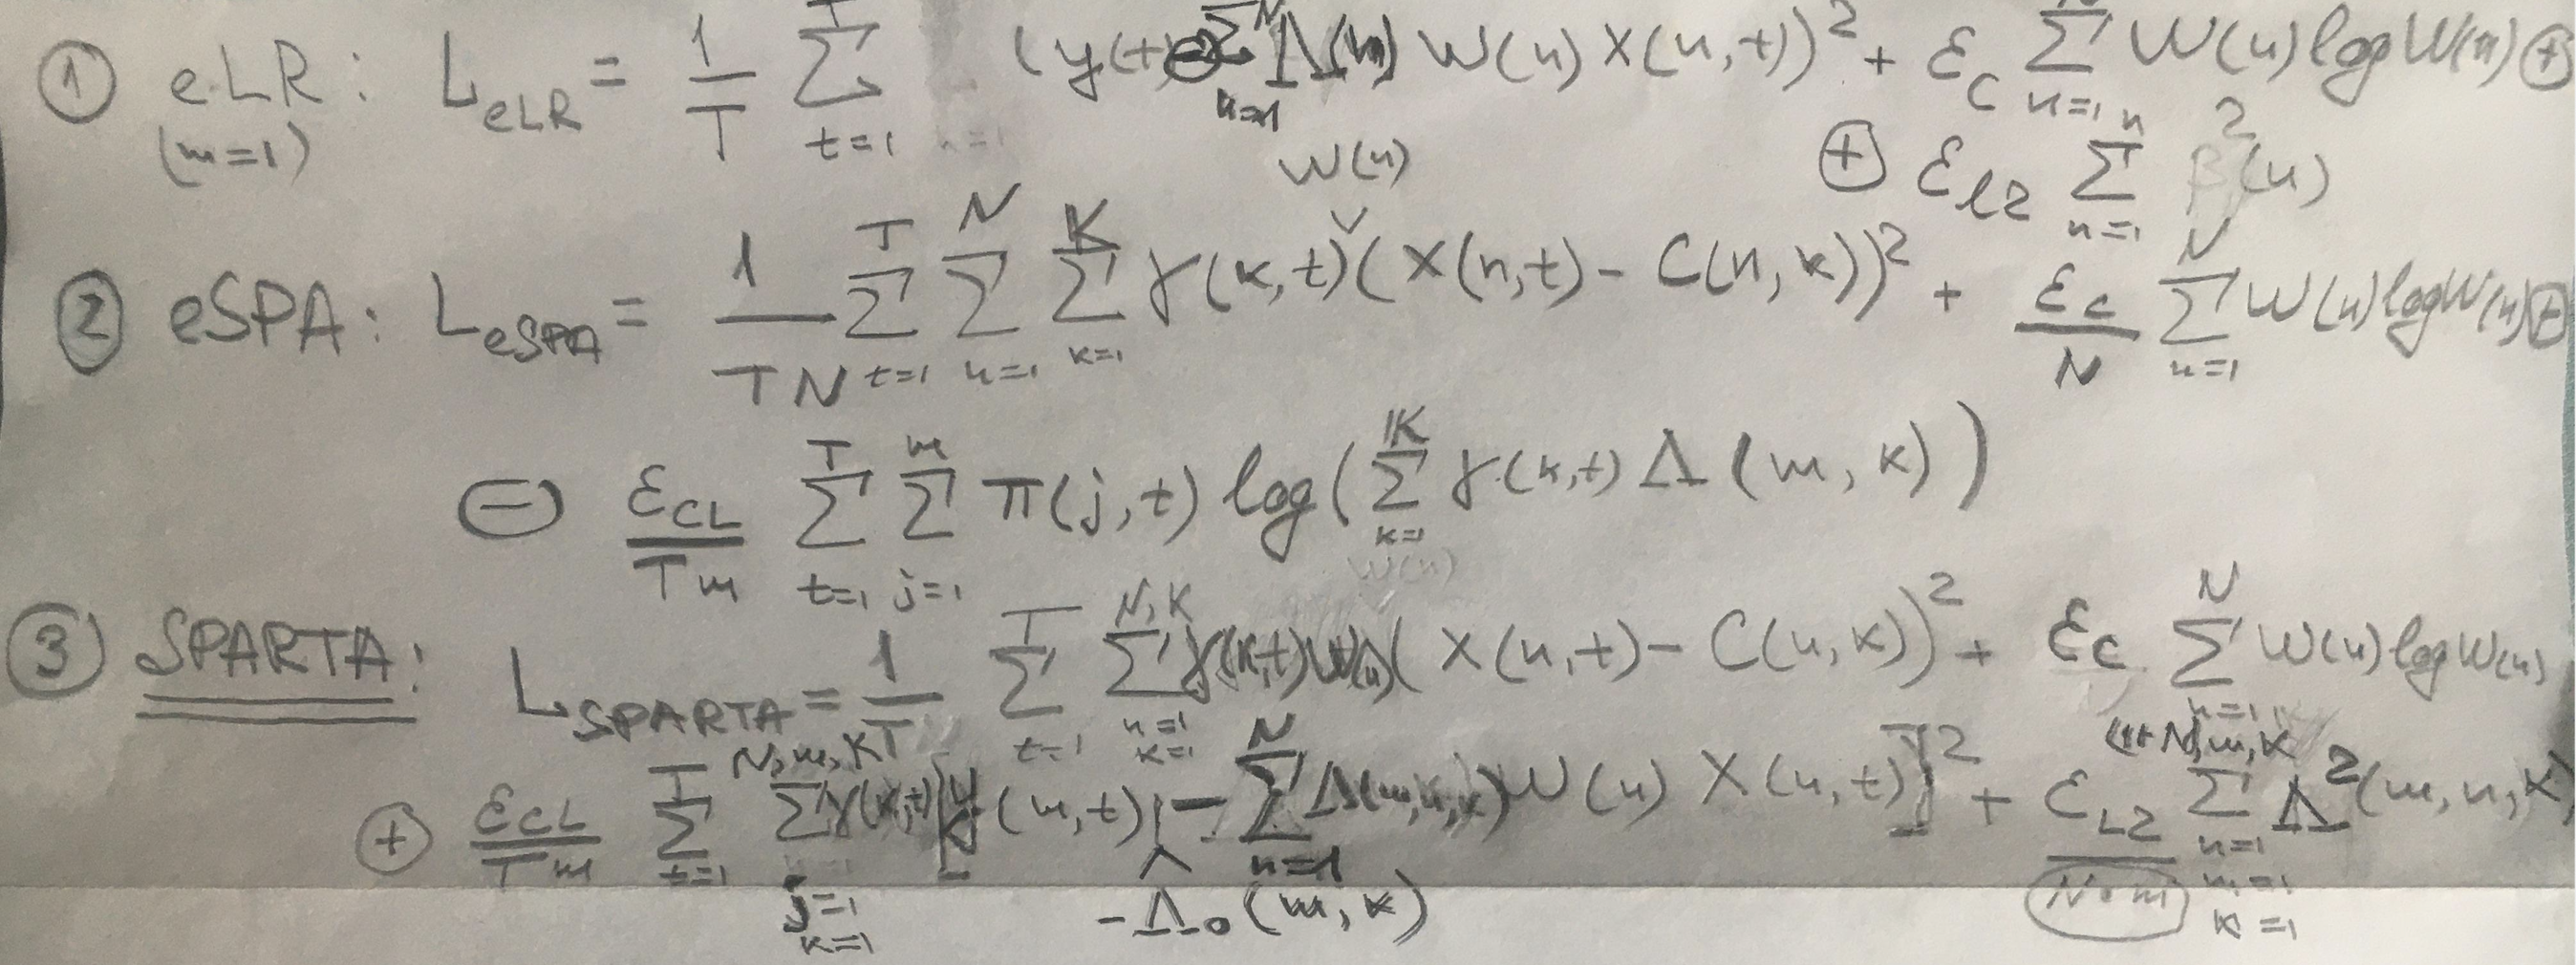 ① eLR: L_eLR = 1/T Σ_{t=1}^{T} (y(t) ⊖ Σ_{n=1}^{N} Λ(n) W(n) X(n,t))² + ε_C Σ_{n=1}^{N} W(n) log W(n) ⊕
(m=1) ⊕ ε_{l2} Σ_{n=1}^{n} β²(n)
W(n)
② eSPA: L_eSPA = 1/TN Σ_{t=1}^{T} Σ_{n=1}^{N} Σ_{k=1}^{K} γ(k,t) ∨ (X(n,t) - C(n,k))² + ε_C/N Σ_{n=1}^{N} W(n) log W(n) ⊕
⊖ ε_CL/Tm Σ_{t=1}^{T} Σ_{j=1}^{m} π(j,t) log(Σ_{k=1}^{K} γ(k,t) Λ(m,k))
W(n)
③ SPARTA: L_SPARTA = 1/T Σ_{t=1}^{T} Σ_{n=1, k=1}^{N,K} γ(k,t) W(n) (X(n,t) - C(n,k))² + ε_C Σ_{n=1}^{N} W(n) log W(n)
⊕ ε_CL/Tm Σ_{t=1}^{T} Σ_{j=1, k=1}^{N,m,K} γ(k,t) [y(m,t) - Σ_{n=1}^{N} Λ(m,n,k) W(n) X(n,t)]² + ε_L2/N·m Σ_{n=1, m=1, k=1}^{N,m,K} Λ²(m,n,k)
- Λ₀(m,k)